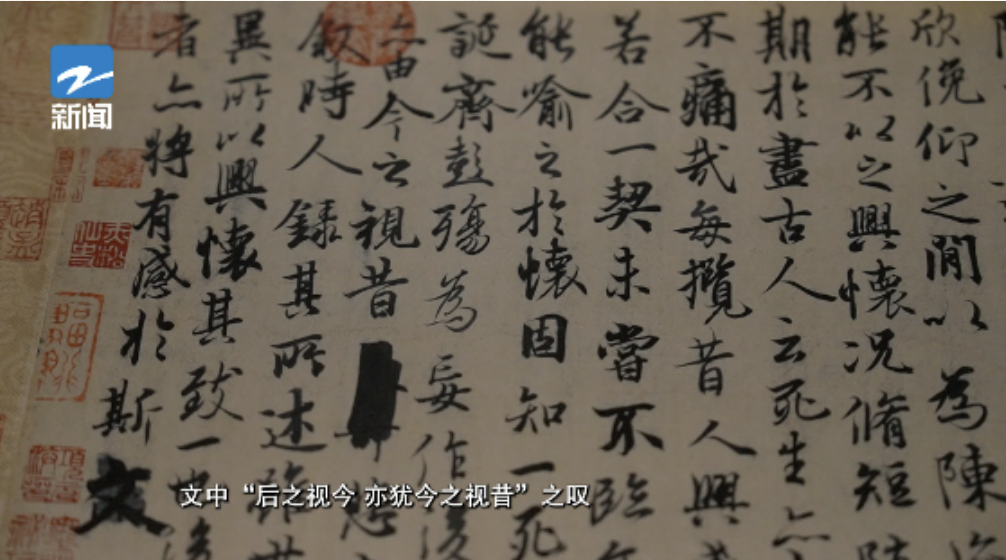 新闻
欣俛仰之閒以為陳
能不以之興懷況脩短
期於盡古人云死生亦
不痛哉每攬昔人興
若合一契未嘗不臨
能喻之於懷固知一死
誕齊彭殤為妄作後
亦由今之視昔悲
敘時人錄其所述雖世
異所以興懷其致一也後
者亦將有感於斯文
文中“后之视今 亦犹今之视昔”之叹